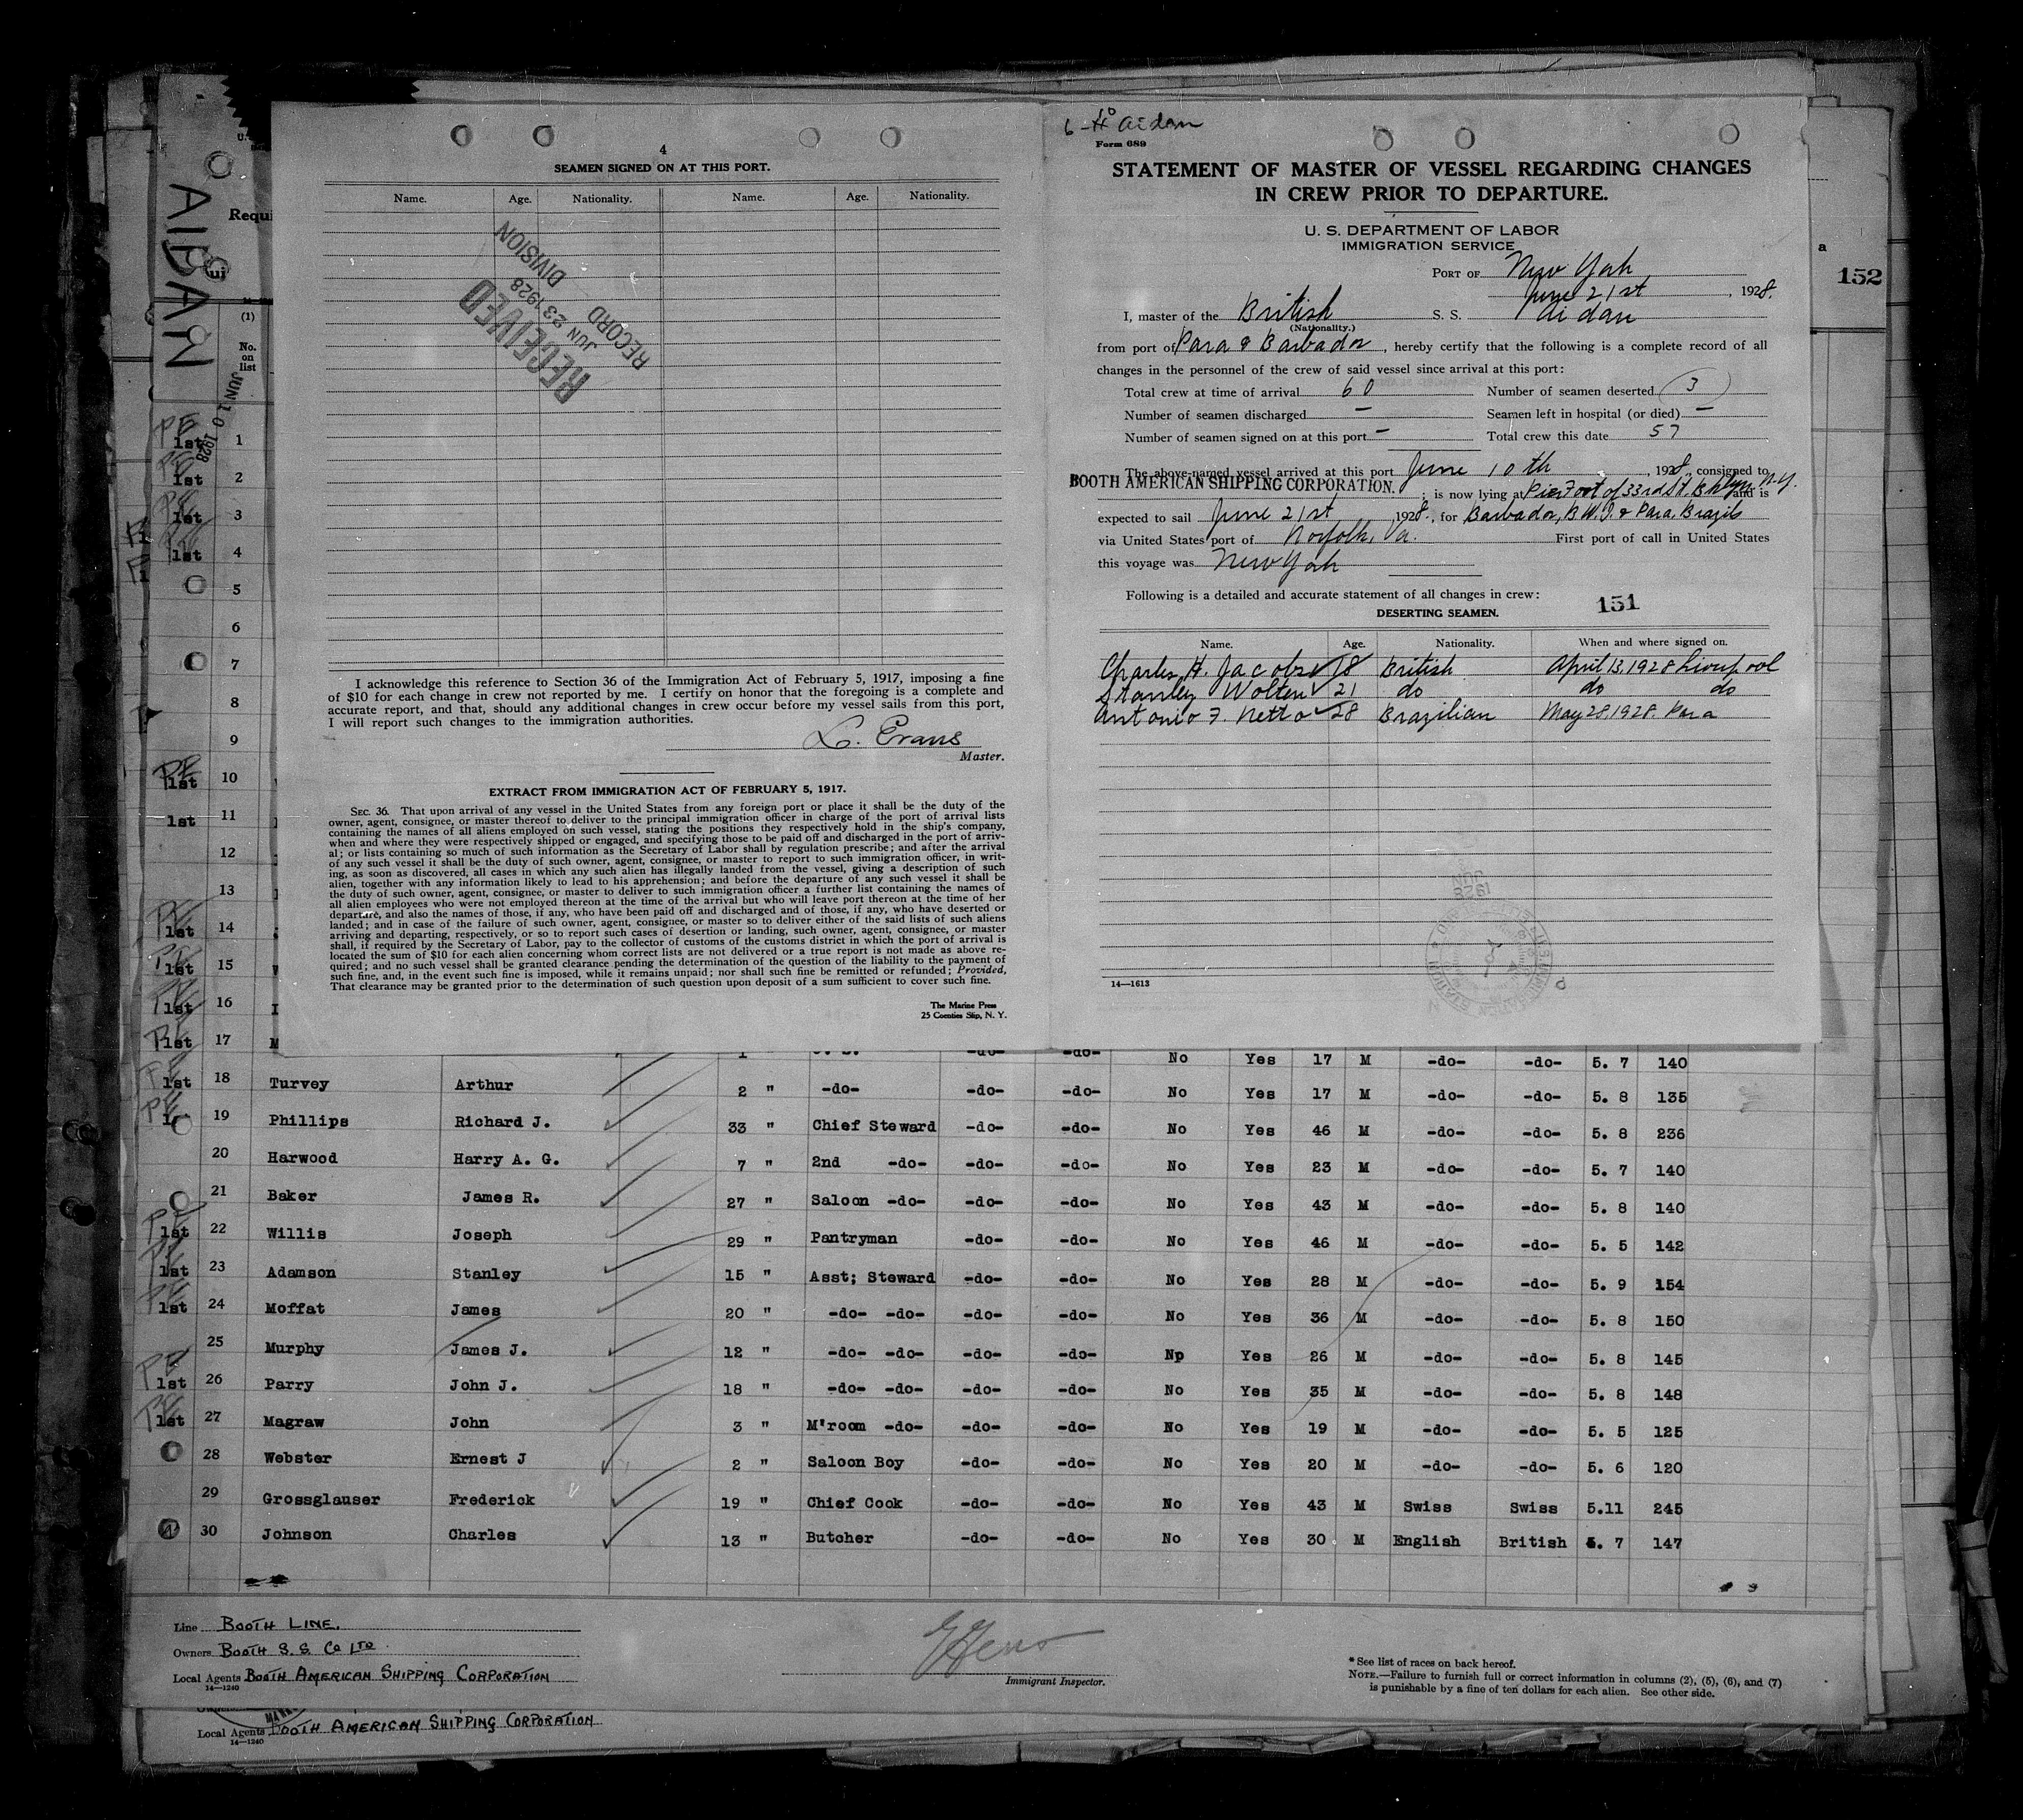 4
SEAMEN SIGNED ON AT THIS PORT.
Name. Age. Nationality. Name. Age. Nationality.
RECEIVED
JUN 23 1928
RECORD DIVISION
I acknowledge this reference to Section 36 of the Immigration Act of February 5, 1917, imposing a fine
of $10 for each change in crew not reported by me. I certify on honor that the foregoing is a complete and
accurate report, and that, should any additional changes in crew occur before my vessel sails from this port,
I will report such changes to the immigration authorities.
L. Evans
Master.
EXTRACT FROM IMMIGRATION ACT OF FEBRUARY 5, 1917.
SEC. 36. That upon arrival of any vessel in the United States from any foreign port or place it shall be the duty of the
owner, agent, consignee, or master thereof to deliver to the principal immigration officer in charge of the port of arrival lists
containing the names of all aliens employed on such vessel, stating the positions they respectively hold in the ship's company,
when and where they were respectively shipped or engaged, and specifying those to be paid off and discharged in the port of arriv-
al; or lists containing so much of such information as the Secretary of Labor shall by regulation prescribe; and after the arrival
of any such vessel it shall be the duty of such owner, agent, consignee, or master to report to such immigration officer, in writ-
ing, as soon as discovered, all cases in which any such alien has illegally landed from the vessel, giving a description of such
alien, together with any information likely to lead to his apprehension; and before the departure of any such vessel it shall be
the duty of such owner, agent, consignee, or master to deliver to such immigration officer a further list containing the names of
all alien employees who were not employed thereon at the time of the arrival but who will leave port thereon at the time of her
departure, and also the names of those, if any, who have been paid off and discharged and of those, if any, who have deserted or
landed; and in case of the failure of such owner, agent, consignee, or master so to deliver either of the said lists of such aliens
arriving and departing, respectively, or so to report such cases of desertion or landing, such owner, agent, consignee, or master
shall, if required by the Secretary of Labor, pay to the collector of customs of the customs district in which the port of arrival is
located the sum of $10 for each alien concerning whom correct lists are not delivered or a true report is not made as above re-
quired; and no such vessel shall be granted clearance pending the determination of the question of the liability to the payment of
such fine, and, in the event such fine is imposed, while it remains unpaid; nor shall such fine be remitted or refunded; Provided,
That clearance may be granted prior to the determination of such question upon deposit of a sum sufficient to cover such fine.
The Marine Press
25 Coenties Slip, N. Y.
Aidan
Form 689
STATEMENT OF MASTER OF VESSEL REGARDING CHANGES
IN CREW PRIOR TO DEPARTURE.
U. S. DEPARTMENT OF LABOR
IMMIGRATION SERVICE
PORT OF New York
June 21st, 1928.
I, master of the British S. S. Aidan
(Nationality.)
from port of Para & Barbados, hereby certify that the following is a complete record of all
changes in the personnel of the crew of said vessel since arrival at this port:
Total crew at time of arrival 60 Number of seamen deserted 3
Number of seamen discharged — Seamen left in hospital (or died) —
Number of seamen signed on at this port — Total crew this date 57
The above-named vessel arrived at this port June 10th, 1928, consigned to
BOOTH AMERICAN SHIPPING CORPORATION.; is now lying at Pier Foot of 33rd St. Bklyn. N.Y. and is
expected to sail June 21st 1928., for Barbados, B.W.I. & Para. Brazils
via United States port of Norfolk, Va. First port of call in United States
this voyage was New York
Following is a detailed and accurate statement of all changes in crew:
151
DESERTING SEAMEN.
Name. Age. Nationality. When and where signed on.
Charles H. Jacobs 18 British April 13, 1928 Liverpool
Stanley Wolten 21 do do do
Antonio F. Netto 28 Brazilian May 28, 1928. Para
14—1613
152
AIDAN
Requi
(1)
No. on list
JUN 10 1928
PE 1st 1
1st 2
1st 3
1st 4
5
6
7
8
9
PE 1st 10
1st 11
12
13
1st 14
1st 15
1st 16
1st 17 M 1 " -do- -do- No Yes 17 M -do- -do- 5. 7 140
1st 18 Turvey Arthur 2 " -do- -do- -do- No Yes 17 M -do- -do- 5. 8 135
19 Phillips Richard J. 33 " Chief Steward -do- -do- No Yes 46 M -do- -do- 5. 8 236
20 Harwood Harry A. G. 7 " 2nd -do- -do- -do- No Yes 23 M -do- -do- 5. 7 140
21 Baker James R. 27 " Saloon -do- -do- -do- No Yes 43 M -do- -do- 5. 8 140
1st 22 Willis Joseph 29 " Pantryman -do- -do- No Yes 46 M -do- -do- 5. 5 142
1st 23 Adamson Stanley 15 " Asst; Steward -do- -do- No Yes 28 M -do- -do- 5. 9 154
1st 24 Moffat James 20 " -do- -do- -do- -do- No Yes 36 M -do- -do- 5. 8 150
25 Murphy James J. 12 " -do- -do- -do- -do- Np Yes 26 M -do- -do- 5. 8 145
1st 26 Parry John J. 18 " -do- -do- -do- -do- No Yes 35 M -do- -do- 5. 8 148
1st 27 Magraw John 3 " M'room -do- -do- -do- No Yes 19 M -do- -do- 5. 5 125
28 Webster Ernest J 2 " Saloon Boy -do- -do- No Yes 20 M -do- -do- 5. 6 120
29 Grossglauser Frederick 19 " Chief Cook -do- -do- No Yes 43 M Swiss Swiss 5.11 245
30 Johnson Charles 13 " Butcher -do- -do- No Yes 30 M English British 5. 7 147
Line BOOTH LINE.
Owners BOOTH S. S. CO LTD.
Local Agents BOOTH AMERICAN SHIPPING CORPORATION
14—1240
Immigrant Inspector.
* See list of races on back hereof.
NOTE.—Failure to furnish full or correct information in columns (2), (5), (6), and (7)
is punishable by a fine of ten dollars for each alien. See other side.
Local Agents BOOTH AMERICAN SHIPPING CORPORATION
14—1240